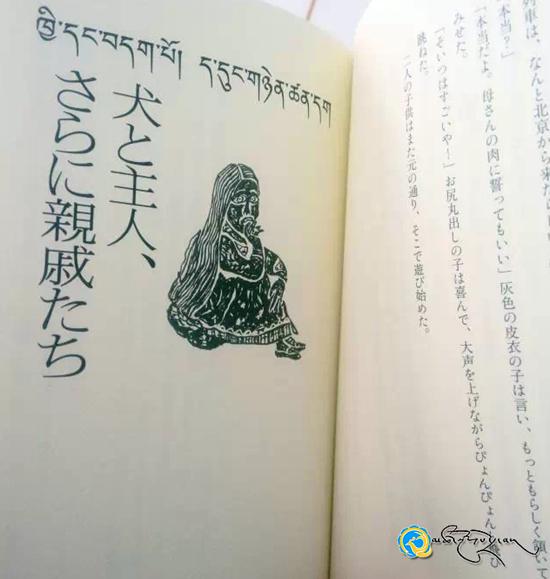 列車は、なんと北京から来た
「本当?」
「本当だよ。母さんの肉に誓ってもいい」灰色の皮衣の子は言い、もっともらしく頷いて
みせた。
「そいつはすごいや!」お尻丸出しの子は喜んで、大声を上げながらぴょんぴょん飛び
跳ねた。
二人の子供はまた元の通り、そこで遊び始めた。
ཁྱི་དང་བདག་པོ། ད་དུང་གཉེན་ཚན་དག
犬と主人、
さらに親戚たち